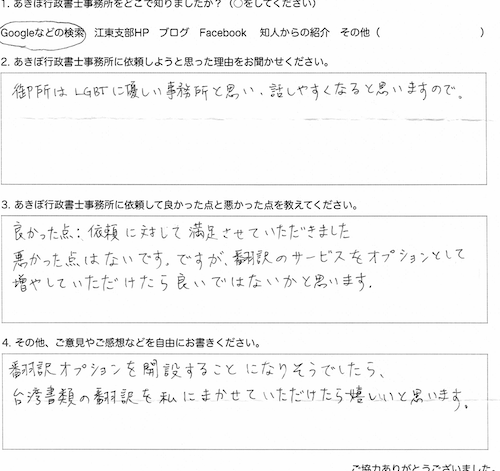 1. あきぼ行政書士事務所をどこで知りましたか？（○をしてください）
Googleなどの検索　江東支部HP　ブログ　Facebook　知人からの紹介　その他（　　　　　　　　）
2. あきぼ行政書士事務所に依頼しようと思った理由をお聞かせください。
御所はLGBTに優しい事務所と思い、話しやすくなると思いますので。
3. あきぼ行政書士事務所に依頼して良かった点と悪かった点を教えてください。
良かった点：依頼に対して満足させていただきました
悪かった点はないです。ですが、翻訳のサービスをオプションとして
増やしていただけたら良いではないかと思います.
4. その他、ご意見やご感想などを自由にお書きください。
翻訳オプションを開設することになりそうでしたら、
台湾書類の翻訳を私にまかせていただけたら嬉しいと思います。
ご協力ありがとうございました。